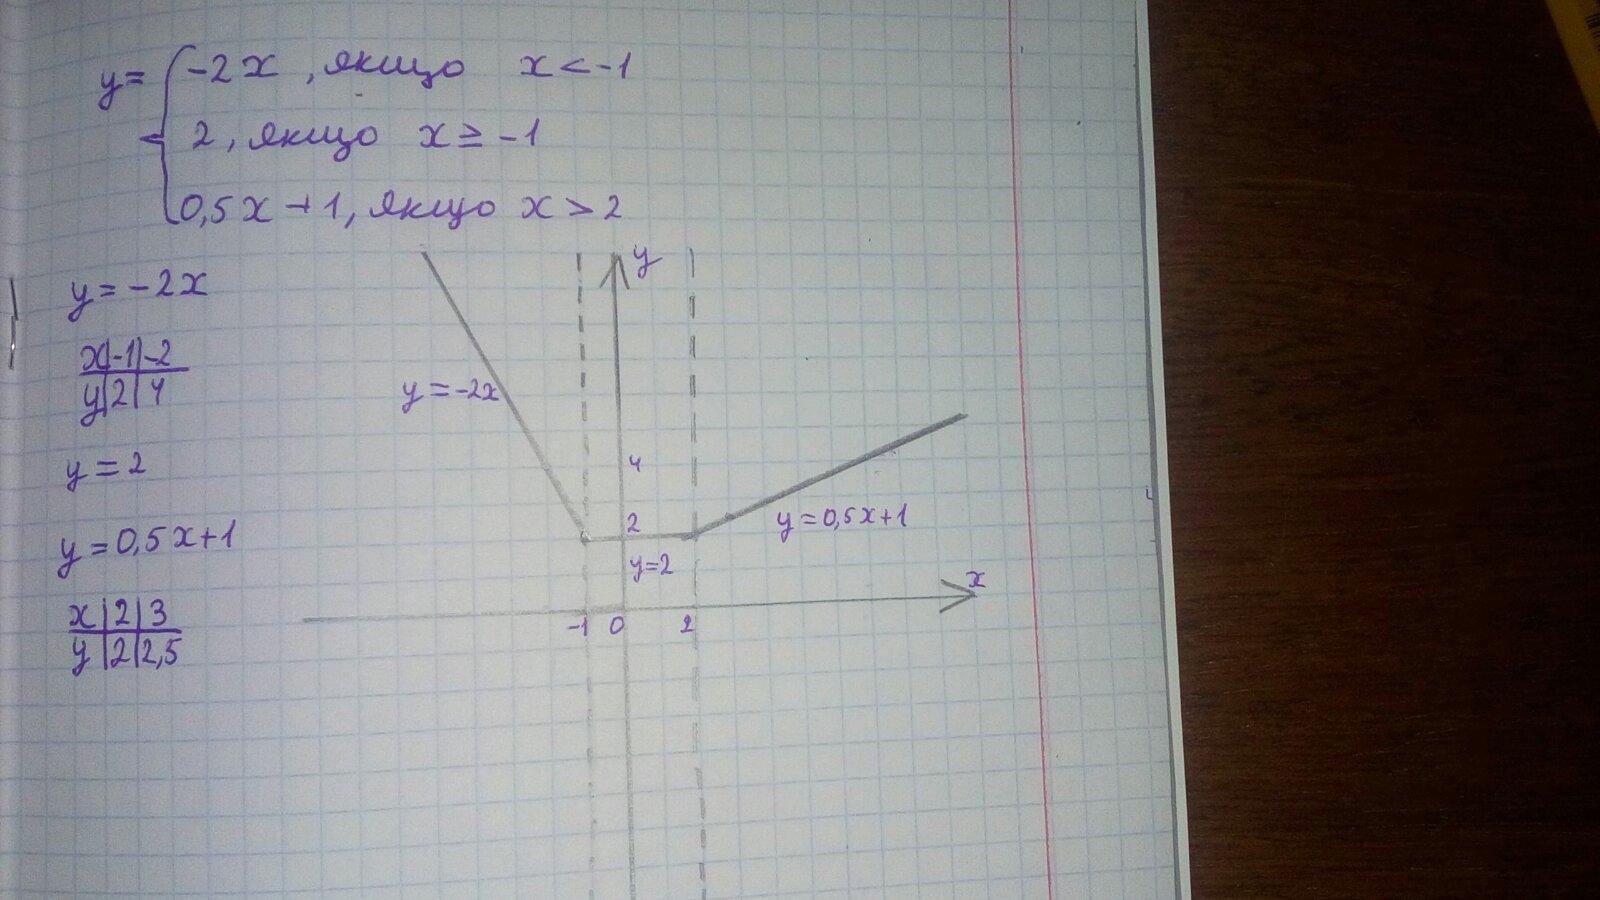 y= -2x, якщо x<-1
2, якщо x ≥ -1
0,5x+1, якщо x>2
y=-2x
x|-1|-2
y|2|4
y=2
y=0,5x+1
x|2|3
y|2|2,5
y
y=-2x
4
2
y=0,5x+1
y=2
x
-1 0 2